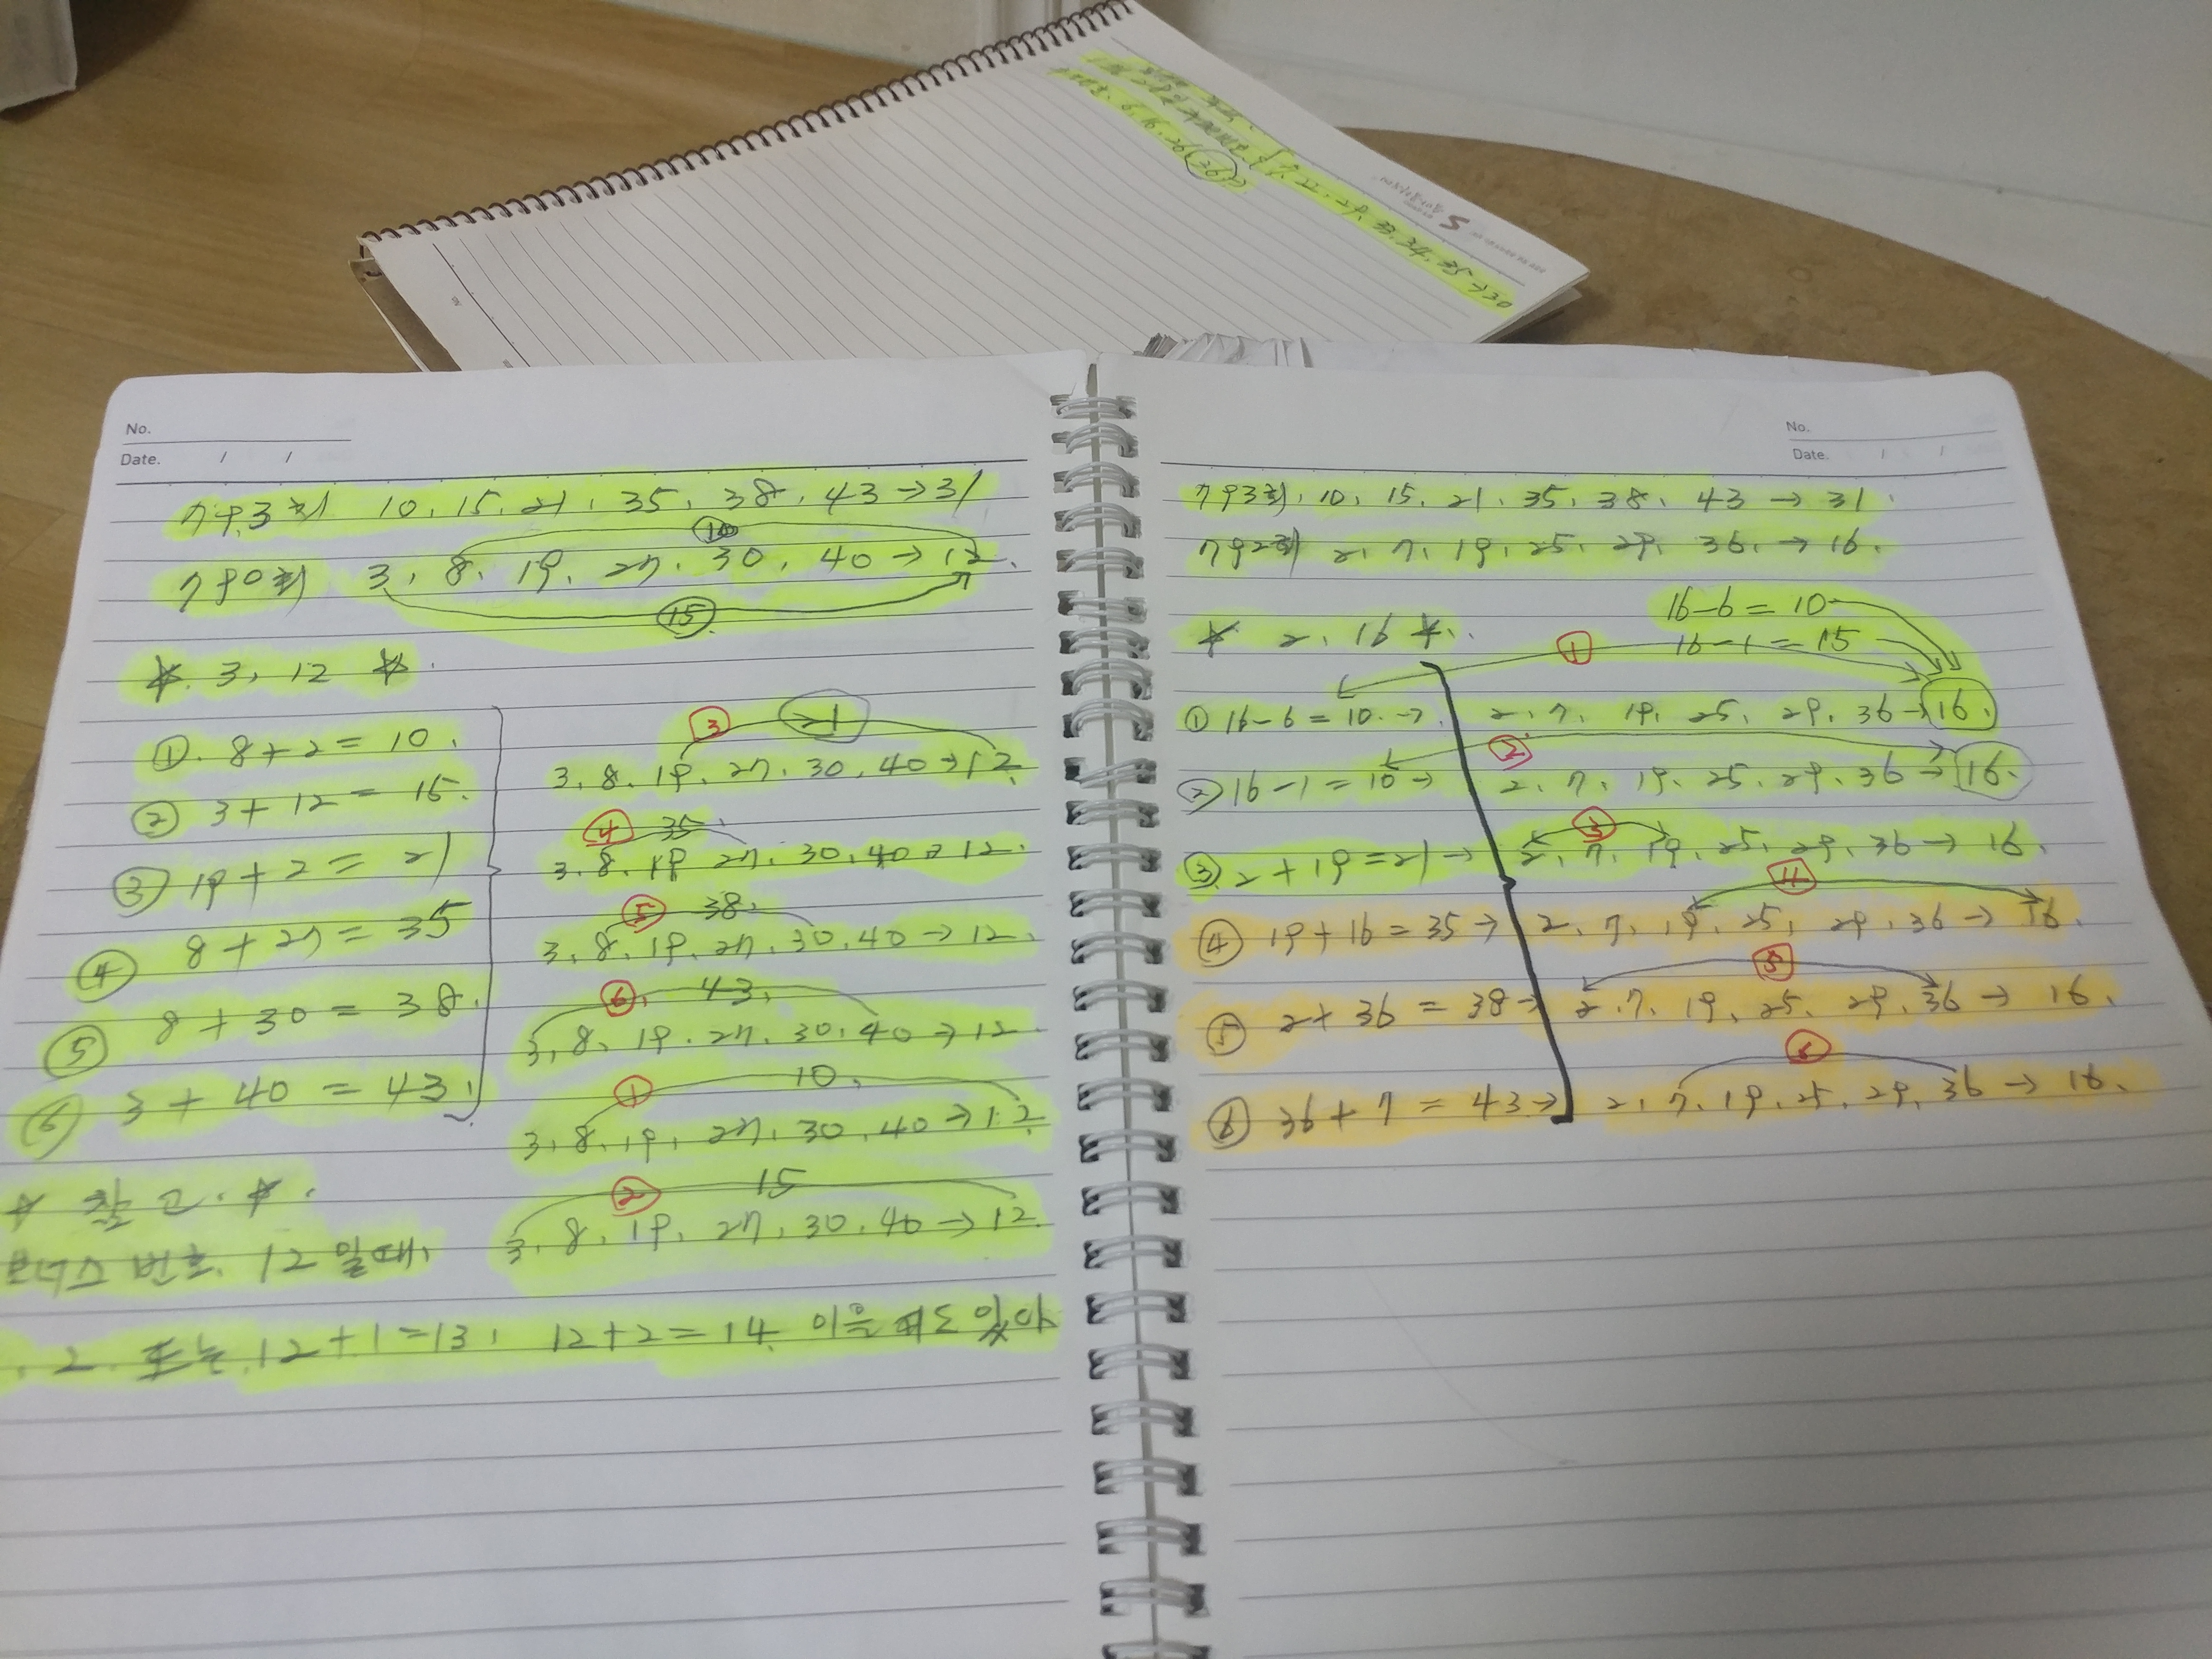 6, 16, 26, 36
7, 22, 29, 33, 34, 35 → 30
No.
Date. / /
793회 10, 15, 21, 35, 38, 43 → 31
10
790회 3, 8, 19, 27, 30, 40 → 12.
15
☆. 3, 12 ☆.
① 8+2 = 10.
② 3+12 = 15.
③ 19+2 = 21
④ 8+27 = 35
⑤ 8+30 = 38.
⑥ 3+40 = 43.
③ 21
3, 8, 19, 27, 30, 40 → 12.
④ 35.
3, 8, 19, 27, 30, 40 → 12.
⑤ 38.
3, 8, 19, 27, 30, 40 → 12.
⑥. 43.
3, 8, 19, 27, 30, 40 → 12
① 10.
3, 8, 19, 27, 30, 40 → 12
② 15
3, 8, 19, 27, 30, 40 → 12.
☆ 참고. ☆.
보너스 번호. 12 일때,
, 2. 또는 12+1=13, 12+2=14. 이을 때도 있다
No.
Date. / /
793회, 10, 15, 21, 35, 38, 43 → 31.
792회 2, 7, 19, 25, 29, 36, → 16.
16-6 = 10
☆ 2, 16 ☆..
① 16-1 = 15
① 16-6 = 10. → 2, 7, 19, 25, 29, 36 → 16.
②
② 16-1 = 15 → 2, 7, 19, 25, 29, 36 → 16.
③
③ 2+19 = 21 → 2, 7, 19, 25, 29, 36 → 16.
④
④ 19+16 = 35 → 2, 7, 19, 25, 29, 36 → 16.
⑤
⑤ 2+36 = 38 → 2, 7, 19, 25, 29, 36 → 16.
⑥
⑥ 36+7 = 43 → 2, 7, 19, 25, 29, 36 → 16.